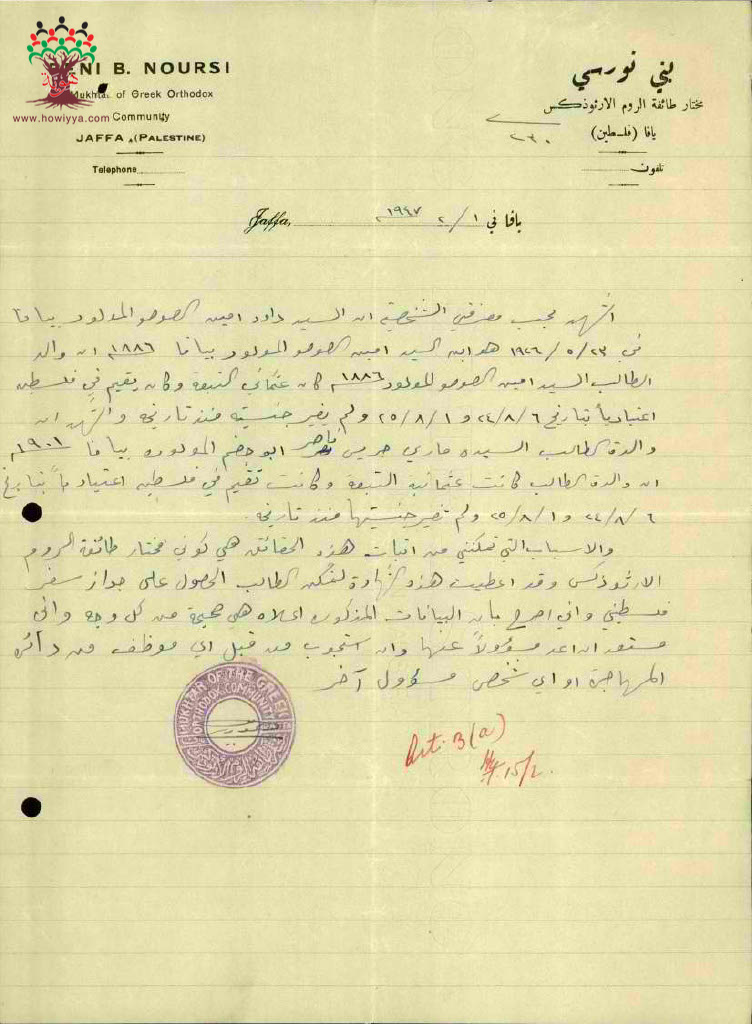 BENI B. NOURSI
Mukhtar of Greek Orthodox
www.howiyya.com Community
JAFFA (PALESTINE)
Telephone
بني نورسي
مختار طائفة الروم الارثوذكس
يافا (فلسطين)
٢٣٠
تلفون
Jaffa, يافا في ١ / ٢ ١٩٤٧م
اشهد بموجب معرفتي الشخصية ان السيد داود امين الصوصو المولود بيافا
في ٢٣ / ٥ / ١٩٢٦ هو ابن السيد امين الصوصو المولود بيافا ١٨٨٦م ان والد
الطالب السيد امين الصوصو المولود ١٨٨٦م كان عثماني التبعة وكان يقيم في فلسطين
اعتيادياً بتاريخ ٦ / ٨ / ٢٤ و ١ / ٨ / ٢٥ ولم يغير جنسيته منذ تاريخه واشهد ان
والدة الطالب السيده ماري جريس ابو خضر المولوده بيافا ١٩٠١م
ان والدة الطالب كانت عثمانية التبعة وكانت تقيم في فلسطين اعتيادياً بتاريخ
٦ / ٨ / ٢٤ و ١ / ٨ / ٢٥ ولم تغير جنسيتها منذ تاريخه.
والاسباب التي تمكنني من اثبات هذه الحقائق هي كوني مختار طائفة الروم
الارثوذكس وقد اعطيت هذه الشهادة لتمكن الطالب الحصول على جواز سفر
فلسطيني واني اصرح بان البيانات المذكوره اعلاه هي صحيحة من كل وجه واني
مستعد ان اعد مسؤولاً عنها وان استجوب من قبل اي موظف من دائره
المهاجرة او اي شخص مسؤول آخر
MUKHTAR OF THE GREEK
ORTHODOX COMMUNITY
Art. 3(a)
15/2.